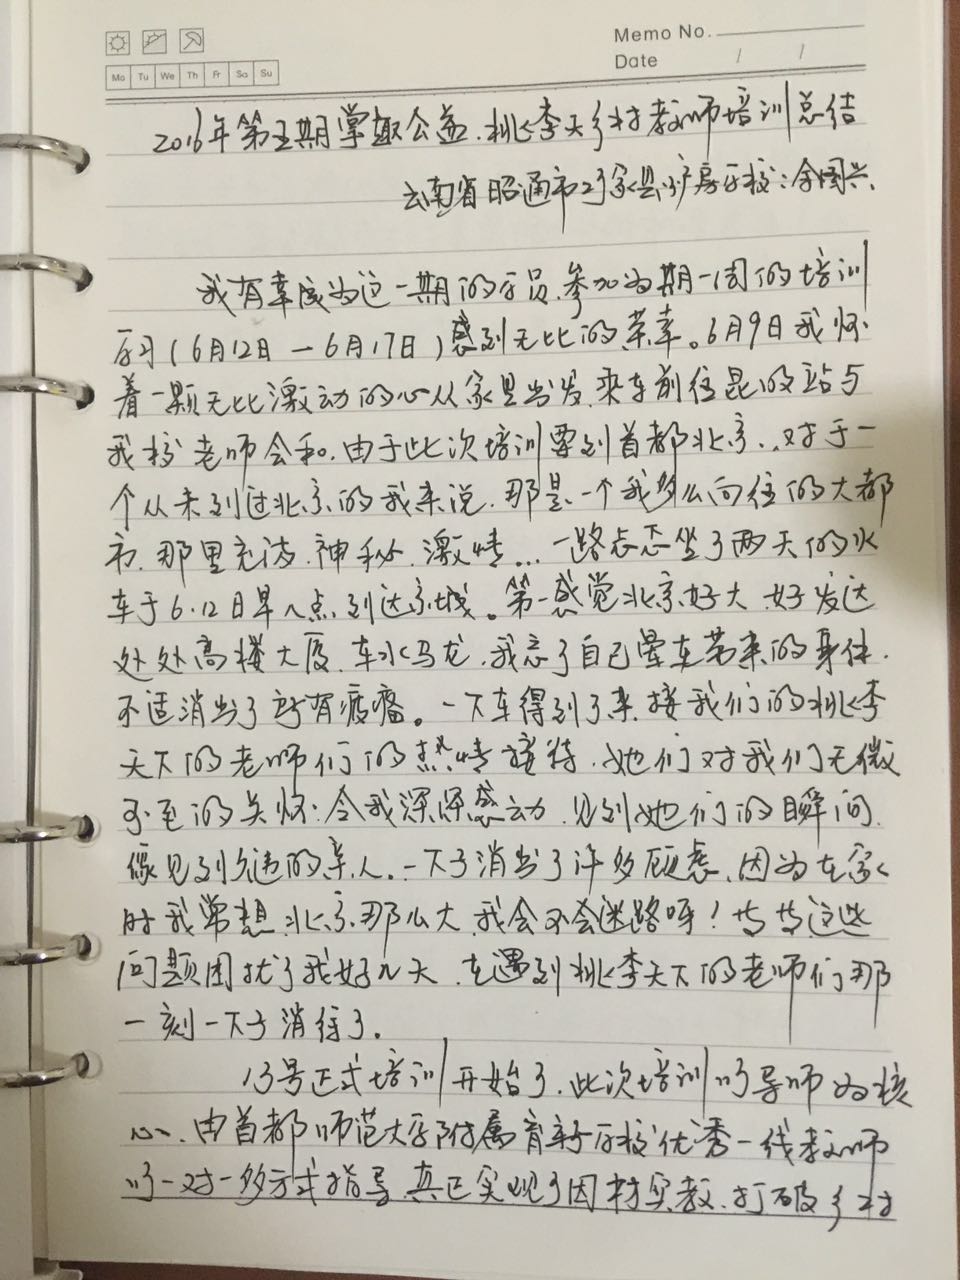 Memo No.
Date / /
Mo Tu We Th Fr Sa Su
2016年第五期掌趣公益.桃李天乡村教师培训总结
云南省昭通市巧家县炉房学校：余国兴
我有幸成为这一期的学员.参加为期一周的培训
学习(6月12日—6月17日)感到无比的荣幸。6月9日我怀
着一颗无比激动的心从家里出发.乘车前往昆明站与
我校老师会和.由于此次培训要到首都北京.对于一
个从未到过北京的我来说.那是一个我多么向往的大都
市.那里充满.神秘.激情...一路忐忑坐了两天的火
车于6.12日早八点到达京城。第一感觉北京好大.好发达
处处高楼大厦.车水马龙.我忘了自己晕车带来的身体.
不适消出了所有疲痛。一下车得到了来接我们的桃李
天下的老师们的热情接待.她们对我们无微
不至的关怀.令我深深感动.见到她们的瞬间.
像见到久违的亲人.一下子消出了许多顾虑.因为在家
时我常想.北京那么大.我会不会迷路呀！等等这些
问题困扰了我好几天.在遇到桃李天下的老师们那
一刻一下子消待了.
13号正式培训开始了.此次培训以导师为核
心.由首都师范大学附属育新学校优秀一线教师
以一对一多方式指导.真正实现了因材实教.打破乡村